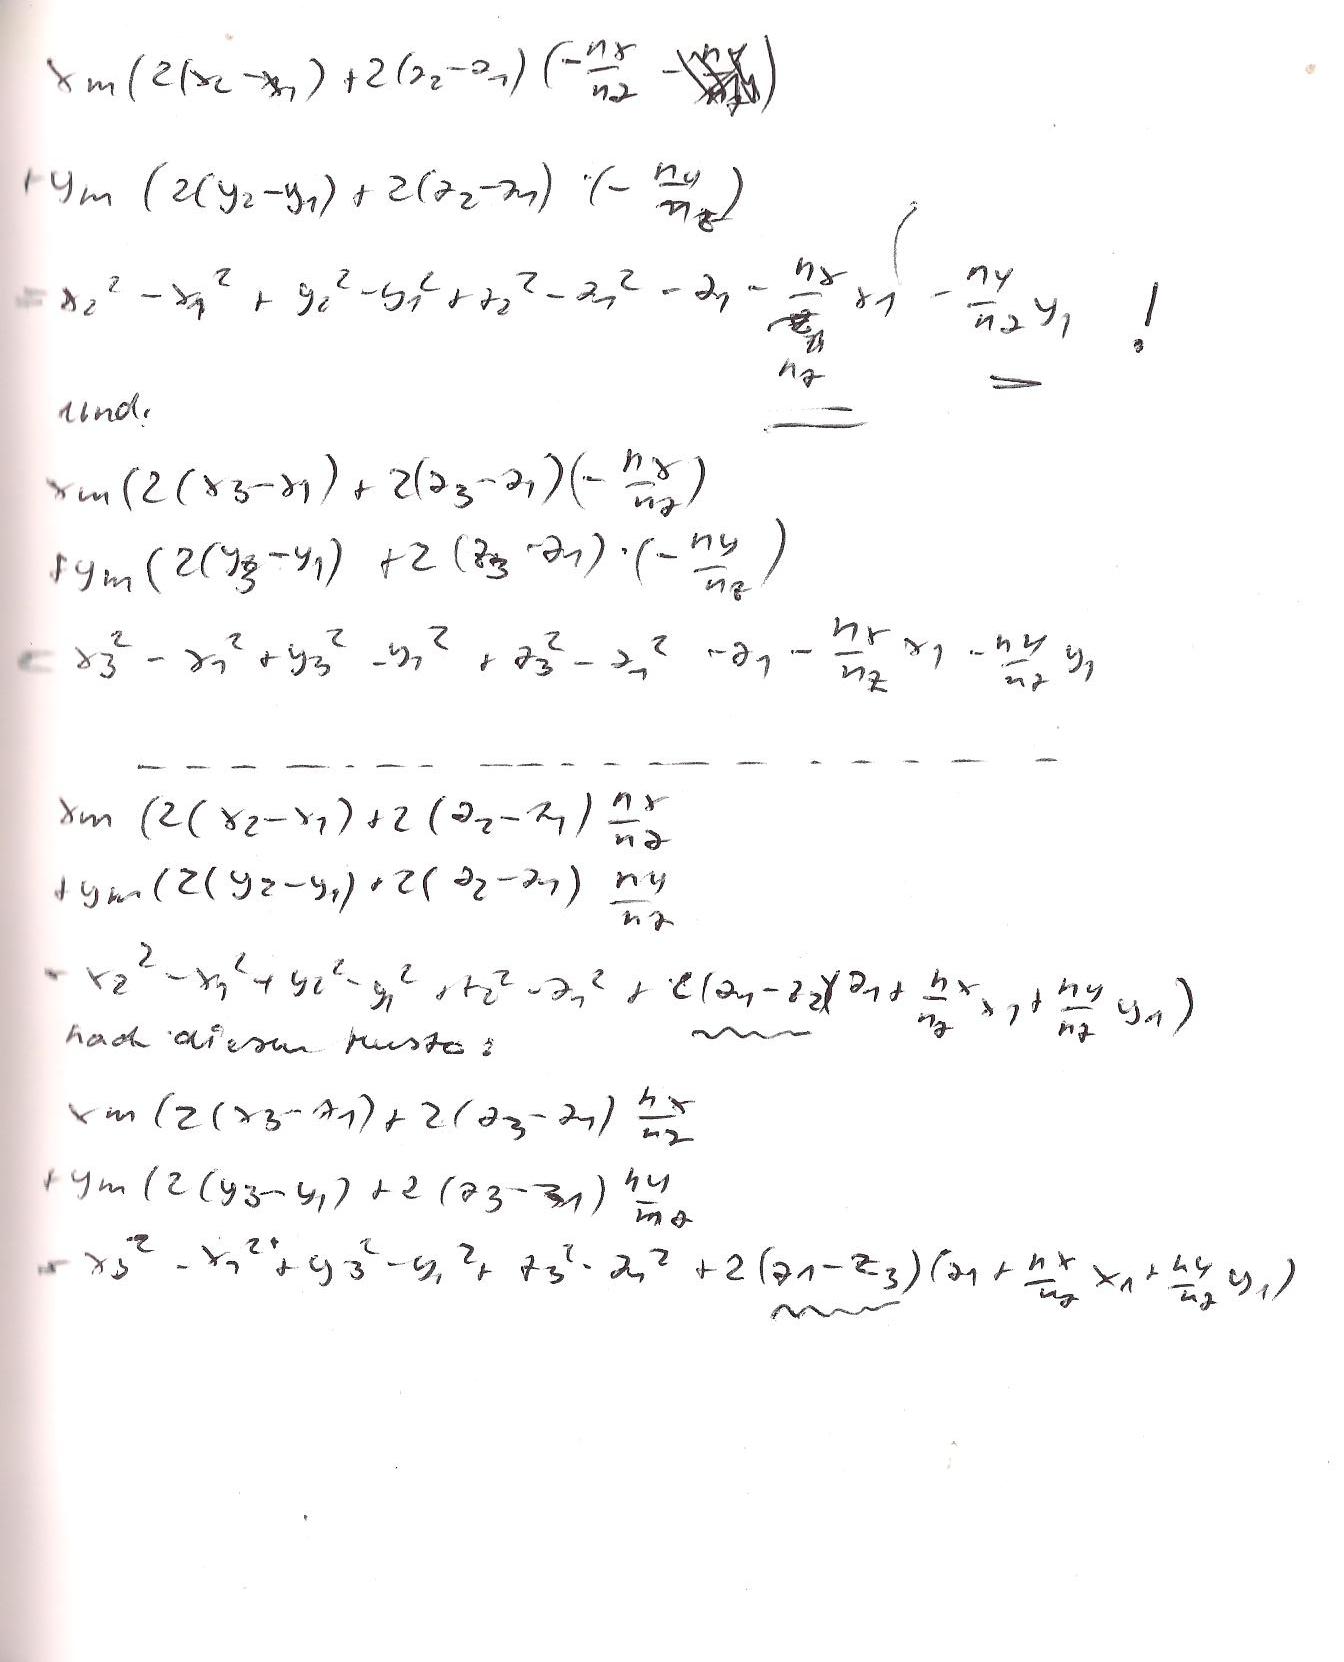 xm(2(x2-x1)+2(z2-z1)(-nx/nz -
+ym(2(y2-y1)+2(z2-z1)·(-ny/nz)
=x2²-x1²+y2²-y1²+z2²-z1²-z1-nx/nz x1-ny/nz y1 !
und.
xm(2(x3-x1)+2(z3-z1)(-nx/nz)
+ym(2(y3-y1)+2(z3-z1)·(-ny/nz)
= x3²-x1²+y3²-y1²+z3²-z1²-z1-nx/nz x1-ny/nz y1
xm(2(x2-x1)+2(z2-z1)nx/nz
+ym(2(y2-y1)+2(z2-z1)ny/nz
= x2²-x1²+y2²-y1²+z2²-z1²+2(z1-z2)(z1+nx/nz x1+ny/nz y1)
nach diesem Muster:
xm(2(x3-x1)+2(z3-z1)nx/nz
+ym(2(y3-y1)+2(z3-z1)ny/nz
= x3²-x1²+y3²-y1²+z3²-z1²+2(z1-z3)(z1+nx/nz x1+ny/nz y1)